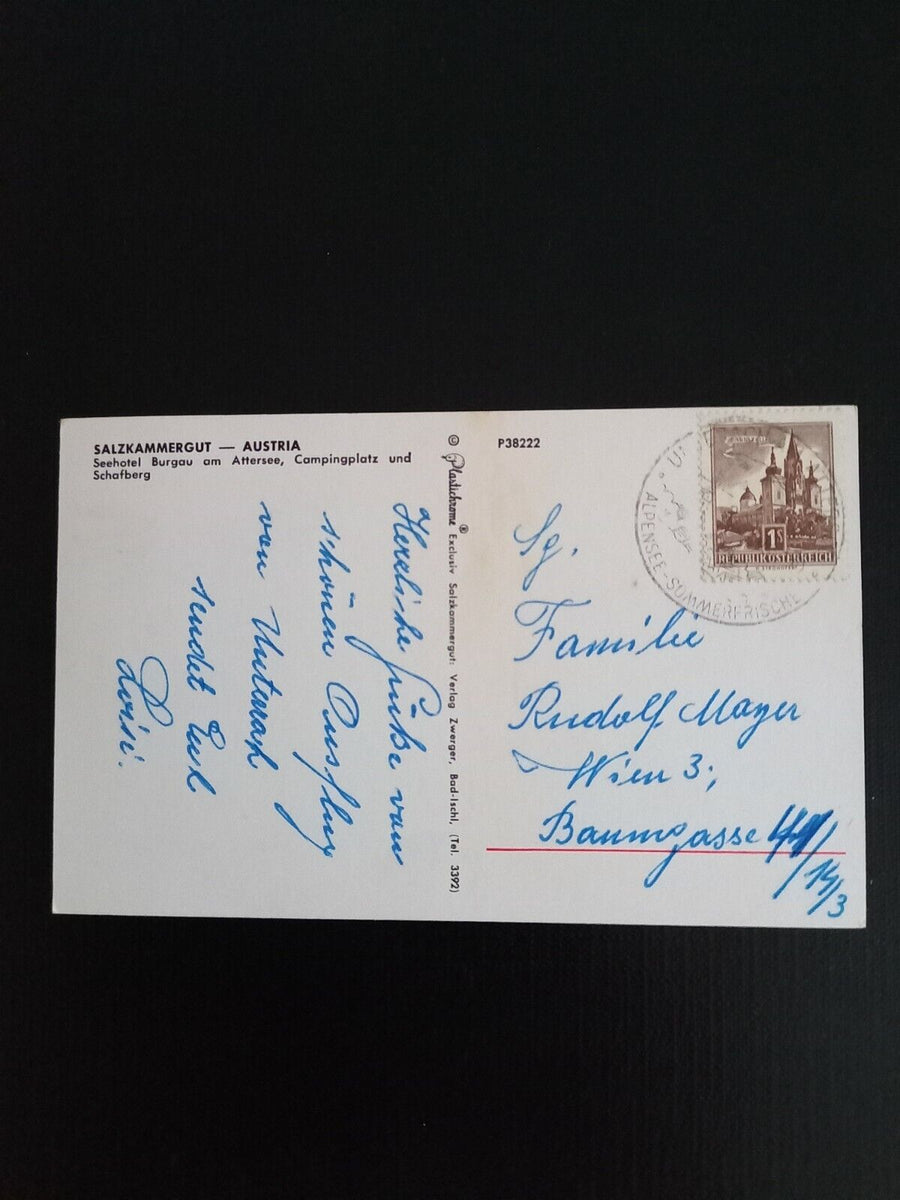 SALZKAMMERGUT — AUSTRIA
Seehotel Burgau am Attersee, Campingplatz und
Schafberg
Herzliche Grüße vom
schönen Ausflug
von Unterach
sendet Euch
© Plastichrome ® Exclusiv Salzkammergut: Verlag Zwerger, Bad-Ischl, (Tel. 3392)
P38222
1 S
REPUBLIK ÖSTERREICH
ALPENSEE-SOMMERFRISCHE
Sg.
Familie
Rudolf Mayer
Wien 3,
Baumgasse
14/3